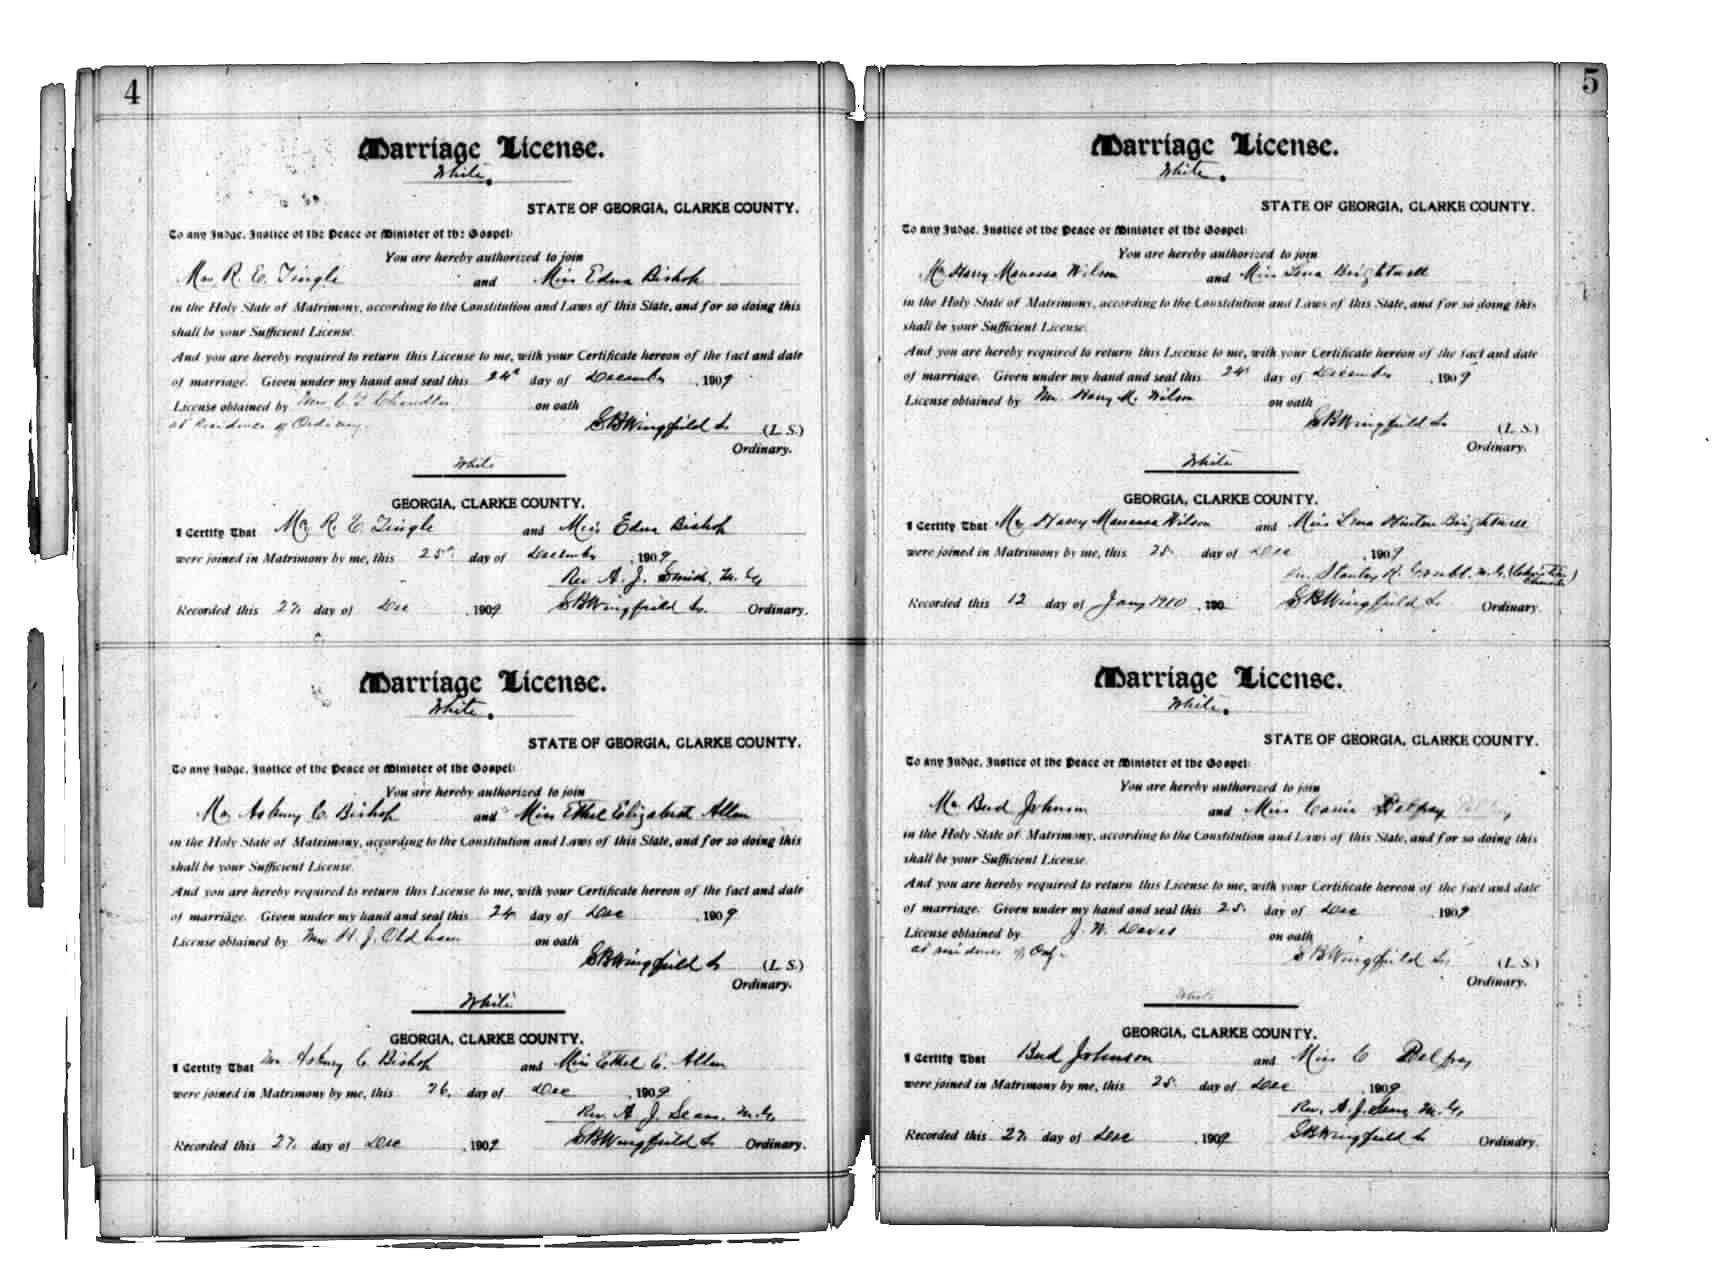 4
Marriage License.
White.
STATE OF GEORGIA, CLARKE COUNTY.
To any Judge, Justice of the Peace or Minister of the Gospel:
You are hereby authorized to join
Mr. R. E. Tingle and Miss Edna Bishop
in the Holy State of Matrimony, according to the Constitution and Laws of this State, and for so doing this
shall be your Sufficient License.
And you are hereby required to return this License to me, with your Certificate hereon of the fact and date
of marriage. Given under my hand and seal this 24" day of December, 1909
License obtained by Mr. C. T. Chandler on oath
at Residence of Ordinary.
S B Wingfield Sr (L. S.)
Ordinary.
White
GEORGIA, CLARKE COUNTY.
I Certify That Mr R. E. Tingle and Miss Edna Bishop
were joined in Matrimony by me, this 25" day of December, 1909
Rev A. J. M. G.
Recorded this 27 day of Dec, 1909 S B Wingfield Sr. Ordinary.
Marriage License.
White.
STATE OF GEORGIA, CLARKE COUNTY.
To any Judge, Justice of the Peace or Minister of the Gospel:
You are hereby authorized to join
Mr. Asbury C. Bishop and Miss Ethel Elizabeth Allen
in the Holy State of Matrimony, according to the Constitution and Laws of this State, and for so doing this
shall be your Sufficient License.
And you are hereby required to return this License to me, with your Certificate hereon of the fact and date
of marriage. Given under my hand and seal this 24 day of Dec, 1909
License obtained by Mr H. J. Oldham on oath
S B Wingfield Sr (L. S.)
Ordinary.
White
GEORGIA, CLARKE COUNTY.
I Certify That Mr Asbury C. Bishop and Miss Ethel E. Allen
were joined in Matrimony by me, this 26. day of Dec, 1909
Rev. A. J. Sears. M. G.
Recorded this 27. day of Dec, 1909 S B Wingfield Sr Ordinary.
5
Marriage License.
White.
STATE OF GEORGIA, CLARKE COUNTY.
To any Judge, Justice of the Peace or Minister of the Gospel:
You are hereby authorized to join
Mr Harry Manassa Wilson and Miss Lena Brightwell
in the Holy State of Matrimony, according to the Constitution and Laws of this State, and for so doing this
shall be your Sufficient License.
And you are hereby required to return this License to me, with your Certificate hereon of the fact and date
of marriage. Given under my hand and seal this 24 day of December, 1909
License obtained by Mr Harry M. Wilson on oath
S B Wingfield Sr (L. S.)
Ordinary.
White
GEORGIA, CLARKE COUNTY.
I Certify That Mr Harry Manassa Wilson and Miss Lena Hinton Brightwell
were joined in Matrimony by me, this 25. day of Dec, 1909
Rev. Stanley R. Grubb. M. G. (Christian Church)
Recorded this 12 day of Jany 1910, 190 S B Wingfield Sr Ordinary.
Marriage License.
White.
STATE OF GEORGIA, CLARKE COUNTY.
To any Judge, Justice of the Peace or Minister of the Gospel:
You are hereby authorized to join
Mr Bud Johnson and Miss Belfrey
in the Holy State of Matrimony, according to the Constitution and Laws of this State, and for so doing this
shall be your Sufficient License.
And you are hereby required to return this License to me, with your Certificate hereon of the fact and date
of marriage. Given under my hand and seal this 25. day of Dec, 1909
License obtained by J. W. Davis on oath
at residence of Ordy.
S B Wingfield Sr. (L. S.)
Ordinary.
White
GEORGIA, CLARKE COUNTY.
I Certify That Bud Johnson and Miss C Belfrey
were joined in Matrimony by me, this 25. day of Dec, 1909
Rev. A. J. Sears M. G.
Recorded this 27. day of Dec, 1909 S B Wingfield Sr Ordinary.